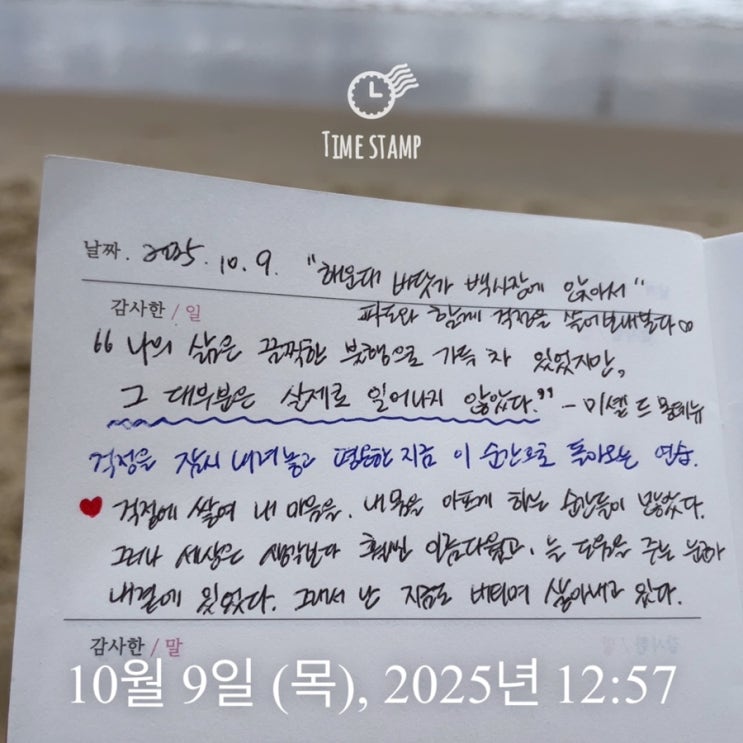 TIME STAMP
날짜. 2025. 10. 9. "해운대 바닷가 백사장에 앉아서"
감사한 / 일
파도와 함께 걱정을 쓸어보내본다∞
“나의 삶은 끔찍한 불행으로 가득 차 있었지만,
그 대부분은 실제로 일어나지 않았다.” - 미셸 드 몽테뉴
걱정을 잠시 내려놓고 평온한 지금 이 순간으로 돌아오는 연습.
♥ 걱정에 쌓여 내 마음을, 내 몸을 아프게 하는 순간들이 많았다.
그러나 세상은 생각보다 훨씬 아름다웠고, 늘 도움을 주는 누군가
내곁에 있었다. 그래서 난 지금도 버티며 살아내고 있다.
감사한 / 말
10월 9일 (목), 2025년 12:57